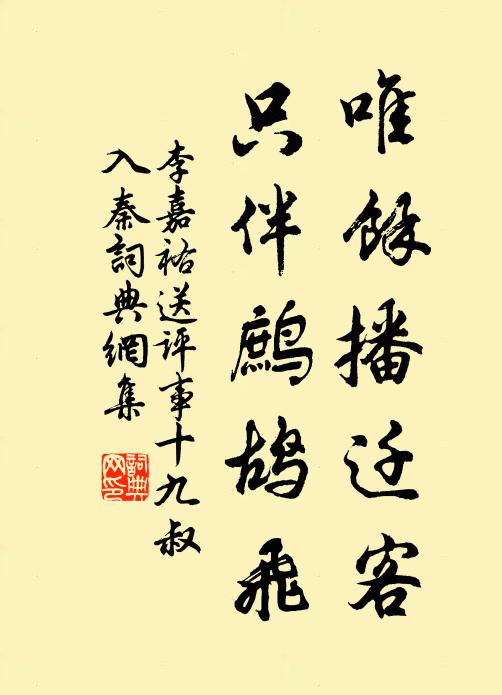 唯餘播迁客
只伴鷓鴣飛
李嘉祐送评事十九叔
入秦詞典網集
詞典网印